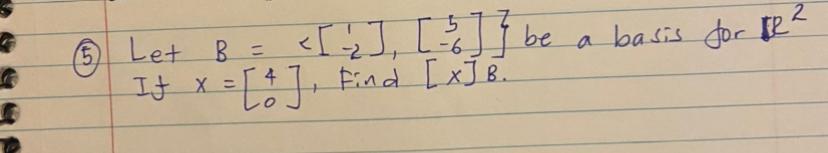 ⑤ Let B = <[1 -2], [5 -6]} be a basis for ℝ²
If x = [4 0], Find [x]B.